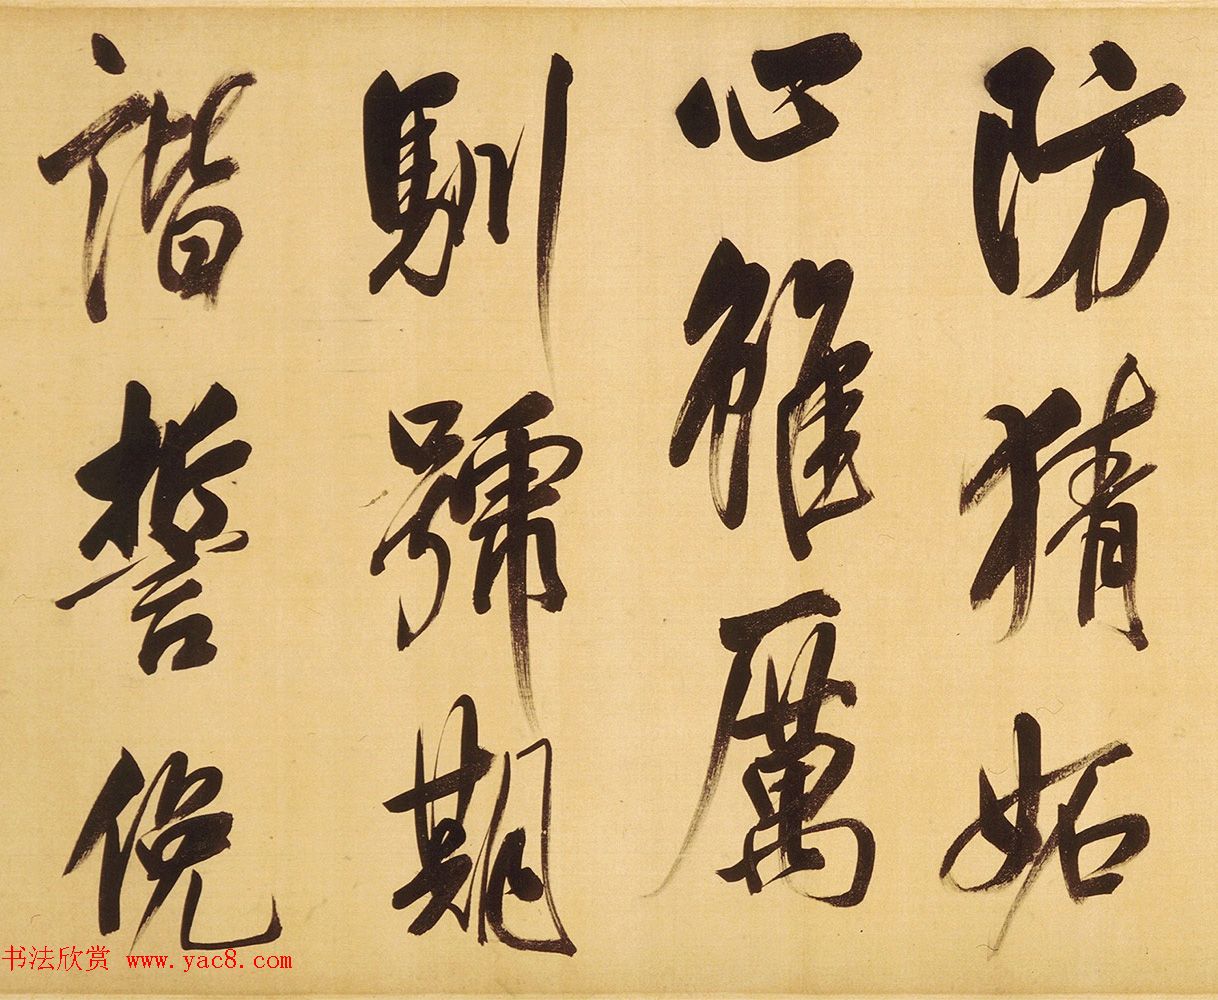 防猜妬
心雖厲
馴號期
諧誓俛
书法欣赏 www.yac8.com